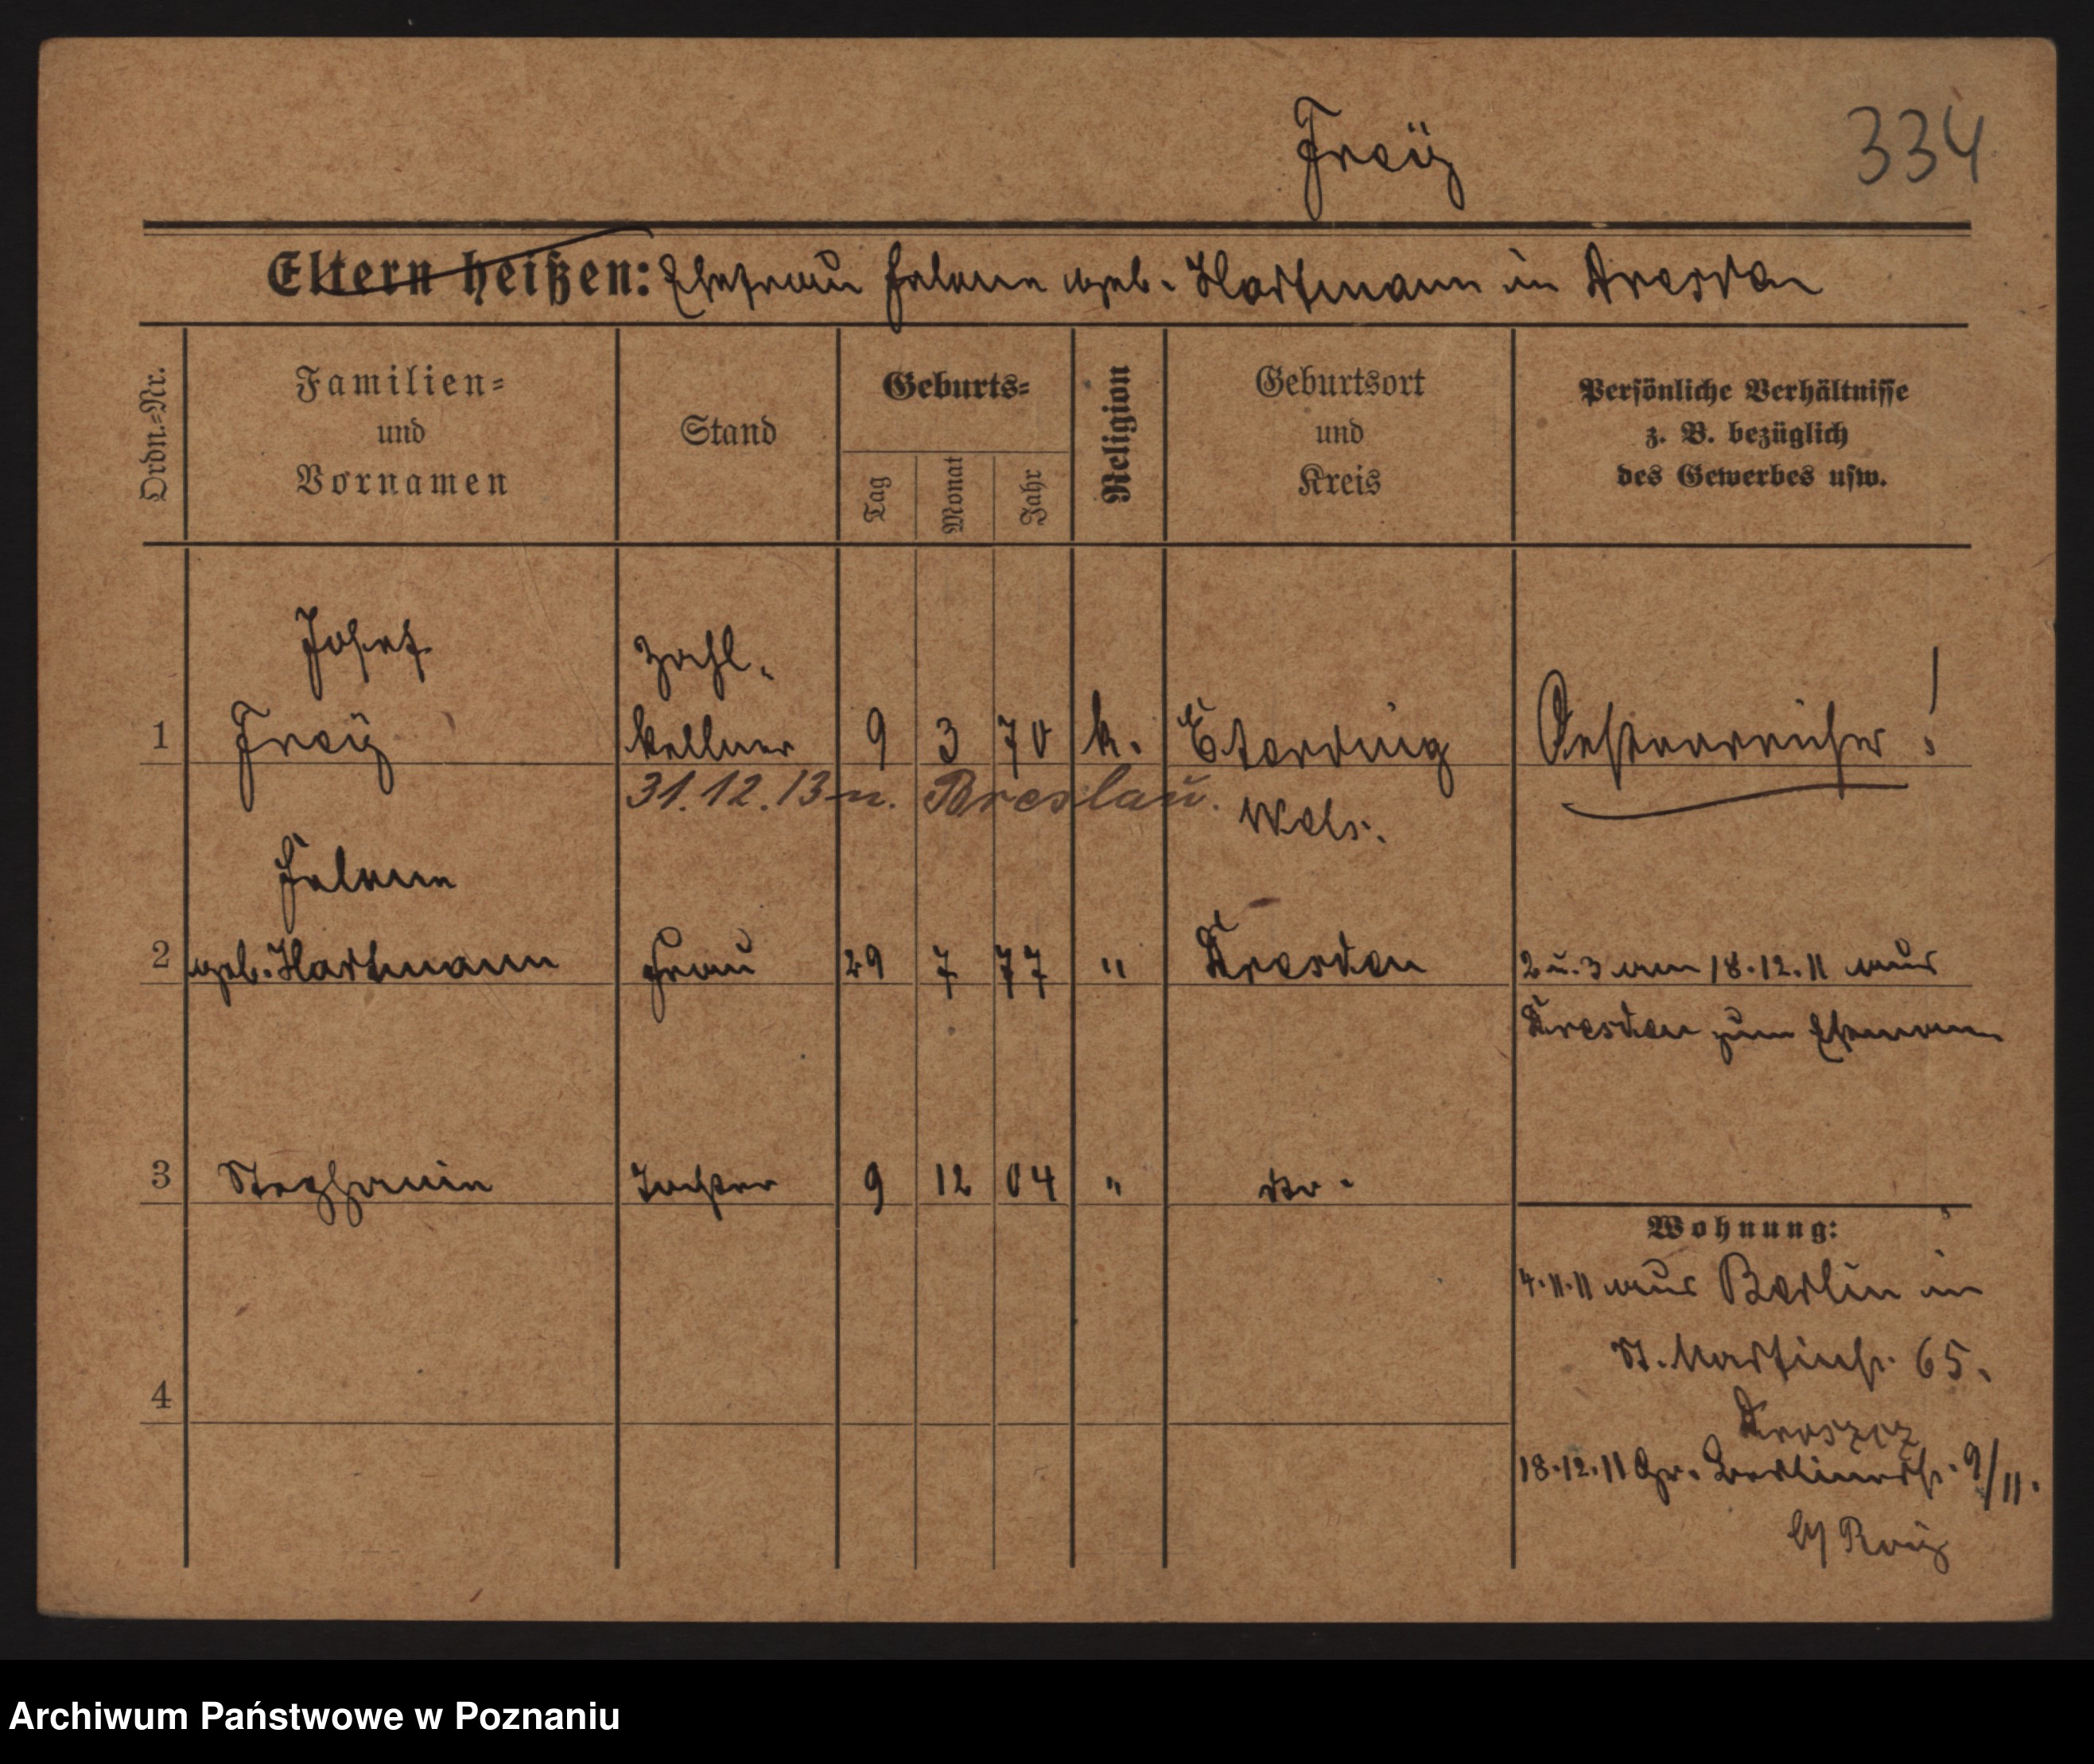 Freÿ
334
Eltern heißen: Ehefrau Helene geb. Hartmann in Dresden
Ordn.=Nr.
Familien=
und
Vornamen
Stand
Geburts=
Tag
Monat
Jahr
Religion
Geburtsort
und
Kreis
Persönliche Verhältnisse
z. B. bezüglich
des Gewerbes usw.
1
Josef
Freÿ
Zahl.
kellner
9
3
70
k.
Efferding
Wels.
Oesterreicher !
31.12.13 n. Breslau.
2
Helene
geb. Hartmann
Frau
29
7
77
"
Dresden
2 u. 3 am 18.12.11 aus
Dresden zum Ehemann
3
Stephanie
Tochter
9
12
04
"
Wohnung:
4.11.11 aus Berlin in
St. Martinstr. 65.
4
18.12.11 Gr. Berlinerstr. 9/11.
Archiwum Państwowe w Poznaniu